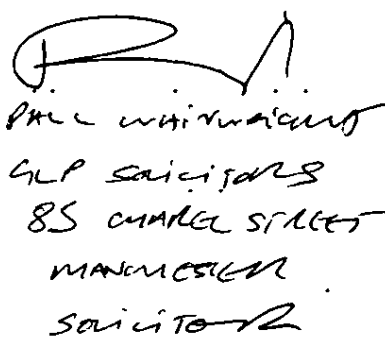 PAUL WAINWRIGHT
GLP SOLICITORS
85 CHAPEL STREET
MANCHESTER
SOLICITOR